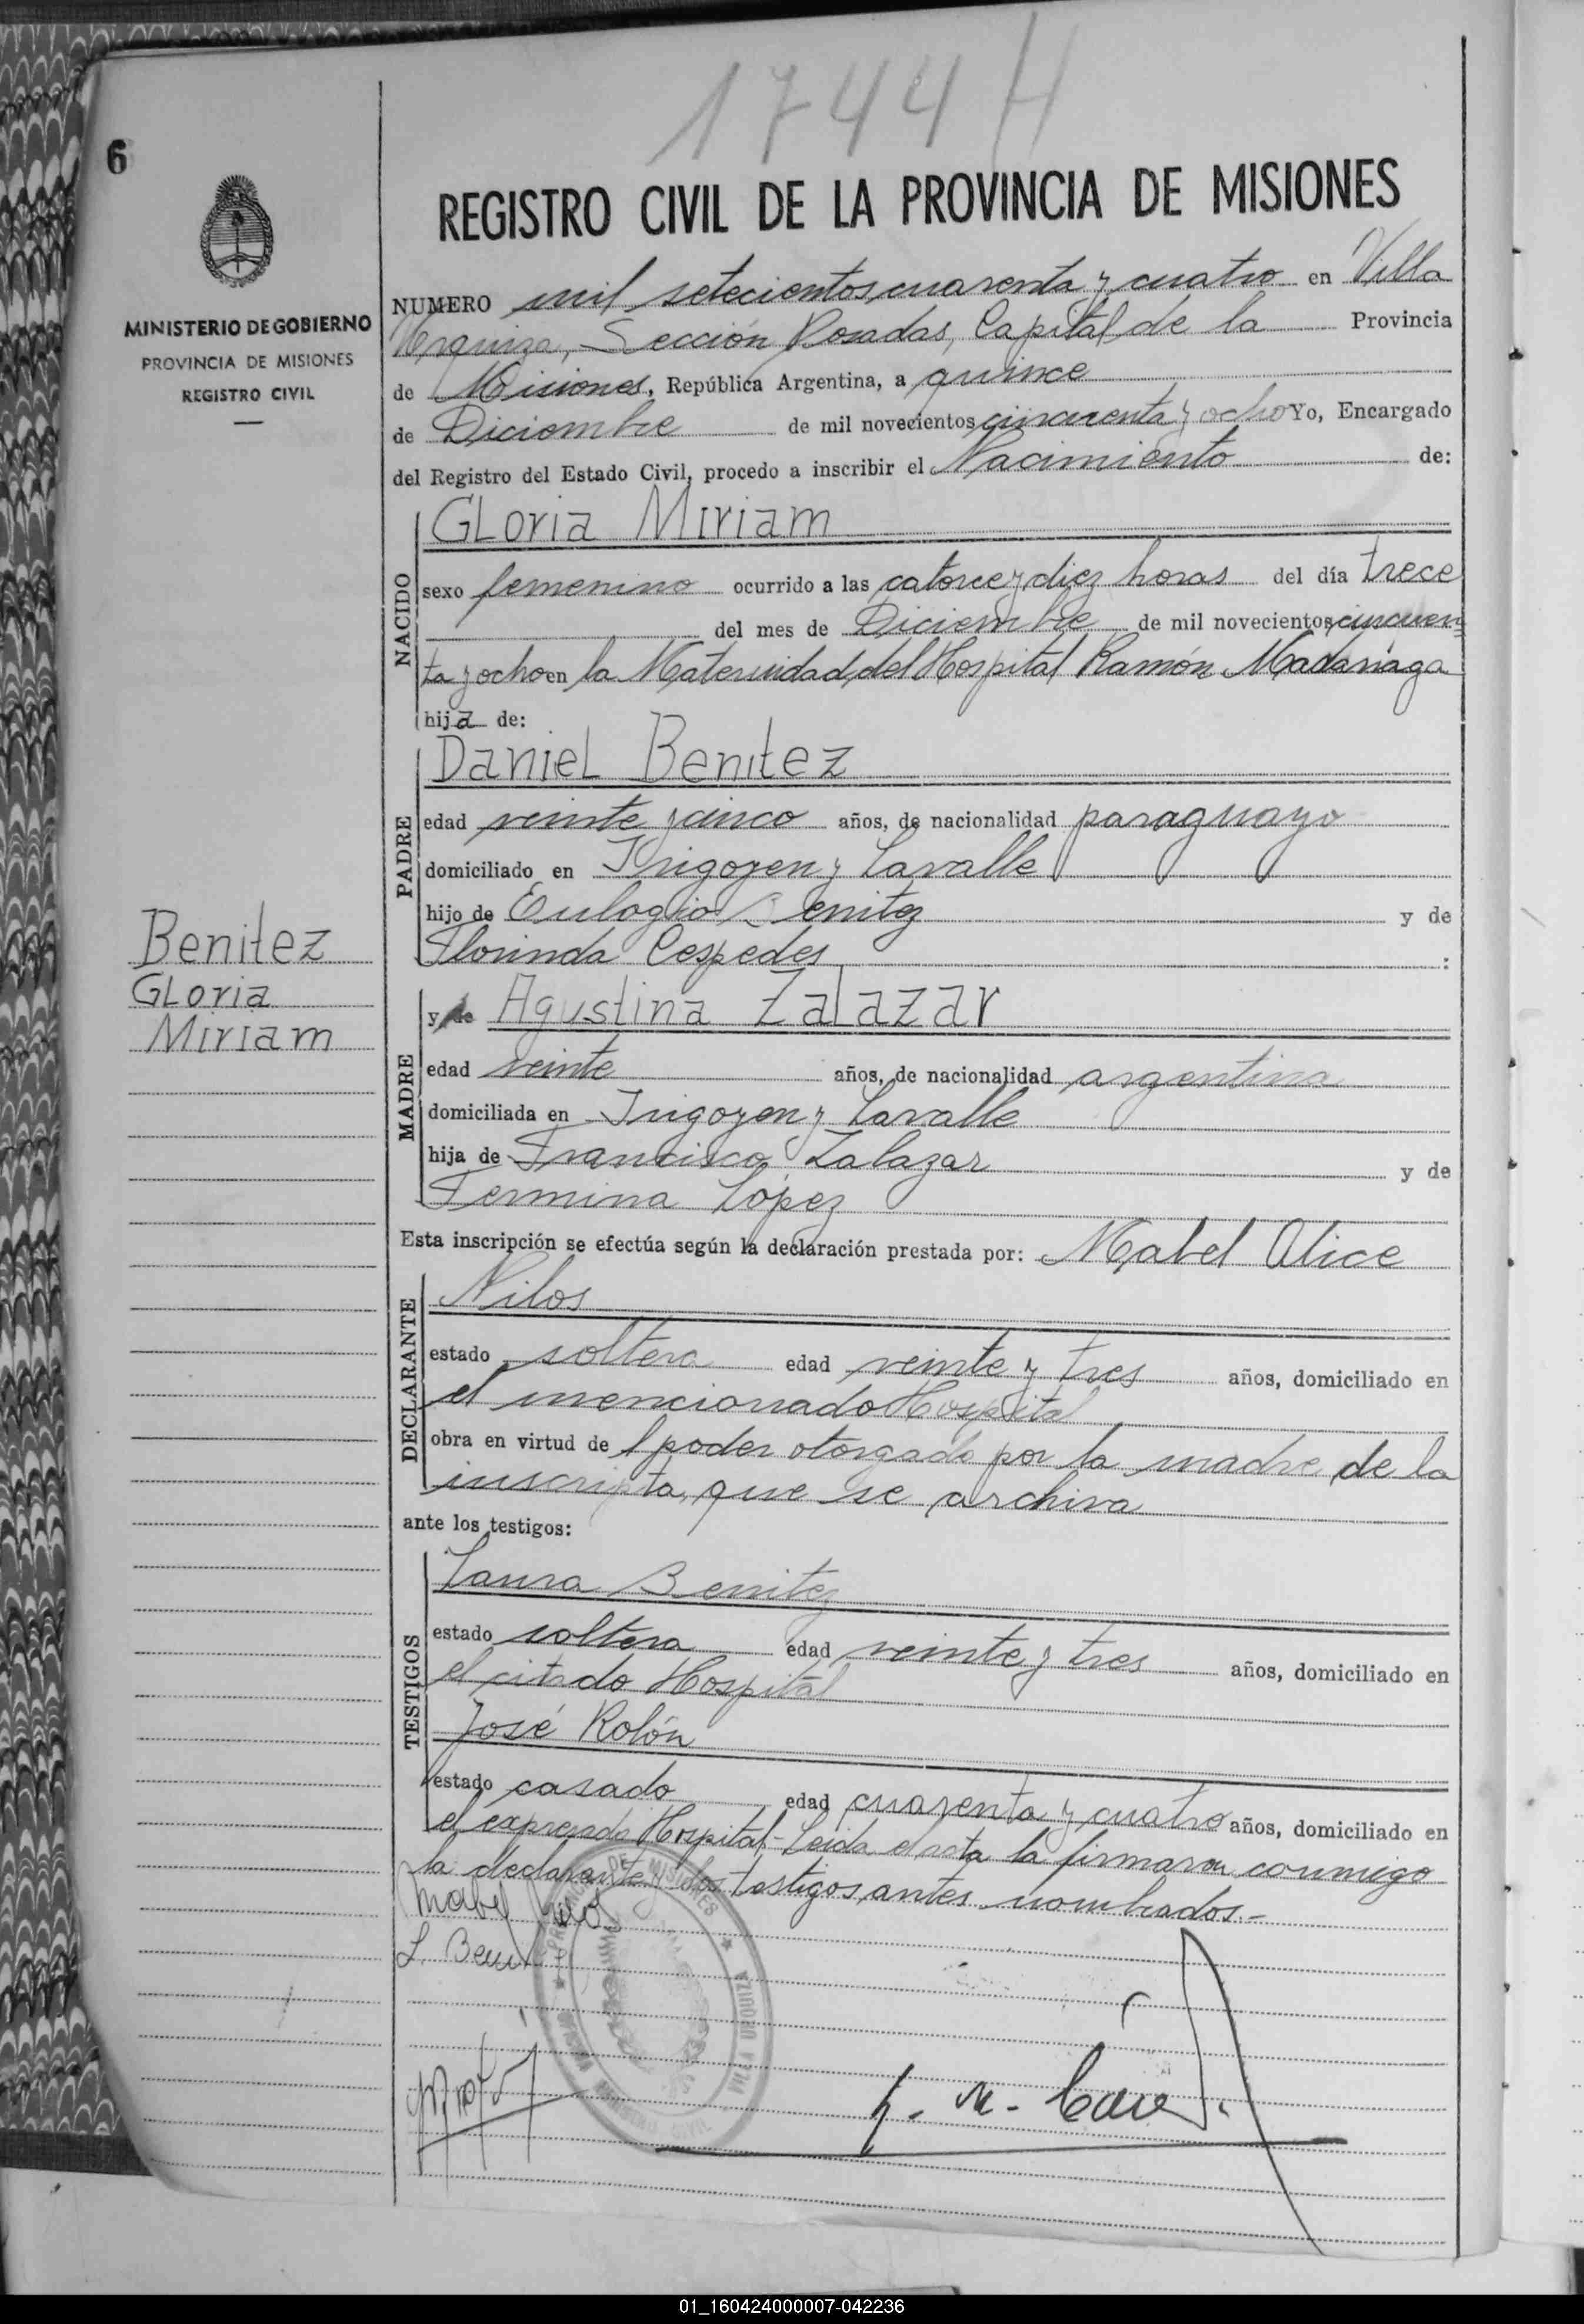 1744 H
6
REGISTRO CIVIL DE LA PROVINCIA DE MISIONES
MINISTERIO DE GOBIERNO
PROVINCIA DE MISIONES
REGISTRO CIVIL
NUMERO mil setecientos cuarenta y cuatro en Villa
Urquiza, Sección Posadas, Capital de la Provincia
de Misiones, República Argentina, a quince
de Diciembre de mil novecientos cincuenta y ocho Yo, Encargado
del Registro del Estado Civil, procedo a inscribir el Nacimiento de:
NACIDO
Gloria Miriam
sexo femenino ocurrido a las catorce y diez horas del día trece
del mes de Diciembre de mil novecientos cincuen
ta y ocho en la Maternidad del Hospital Ramón Madariaga
hija de:
PADRE
Daniel Benitez
edad veinte y cinco años, de nacionalidad paraguayo
domiciliado en Irigoyen y Lavalle
hijo de Eulogio Benitez y de
Florinda Cespedes :
Benitez
Gloria
Miriam
MADRE
y de Agustina Zalazar
edad veinte años, de nacionalidad argentina
domiciliada en Irigoyen y Lavalle
hija de Francisco Zalazar y de
Fermina López
Esta inscripción se efectúa según la declaración prestada por: Mabel Alice
DECLARANTE
Nilos
estado soltera edad veinte y tres años, domiciliado en
el mencionado Hospital
obra en virtud de l poder otorgado por la madre de la
inscripta, que se archiva
ante los testigos:
TESTIGOS
Laura Benitez
estado soltera edad veinte y tres años, domiciliado en
el citado Hospital
José Rolón
estado casado edad cuarenta y cuatro años, domiciliado en
el expresado Hospital - Leida el acta la firmaron conmigo
la declarante y los testigos antes nombrados.-
Mabel Nilos
L. Benitez
PROVINCIA DE MISIONES
VILLA URQUIZA
01_160424000007-042236